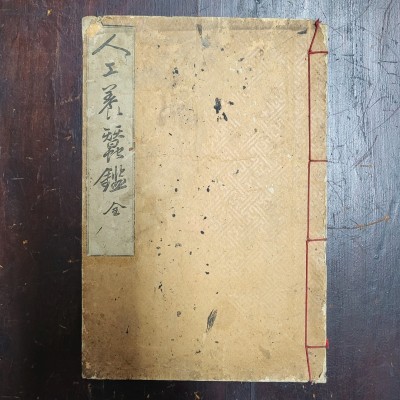 人工養蚕鑑 全